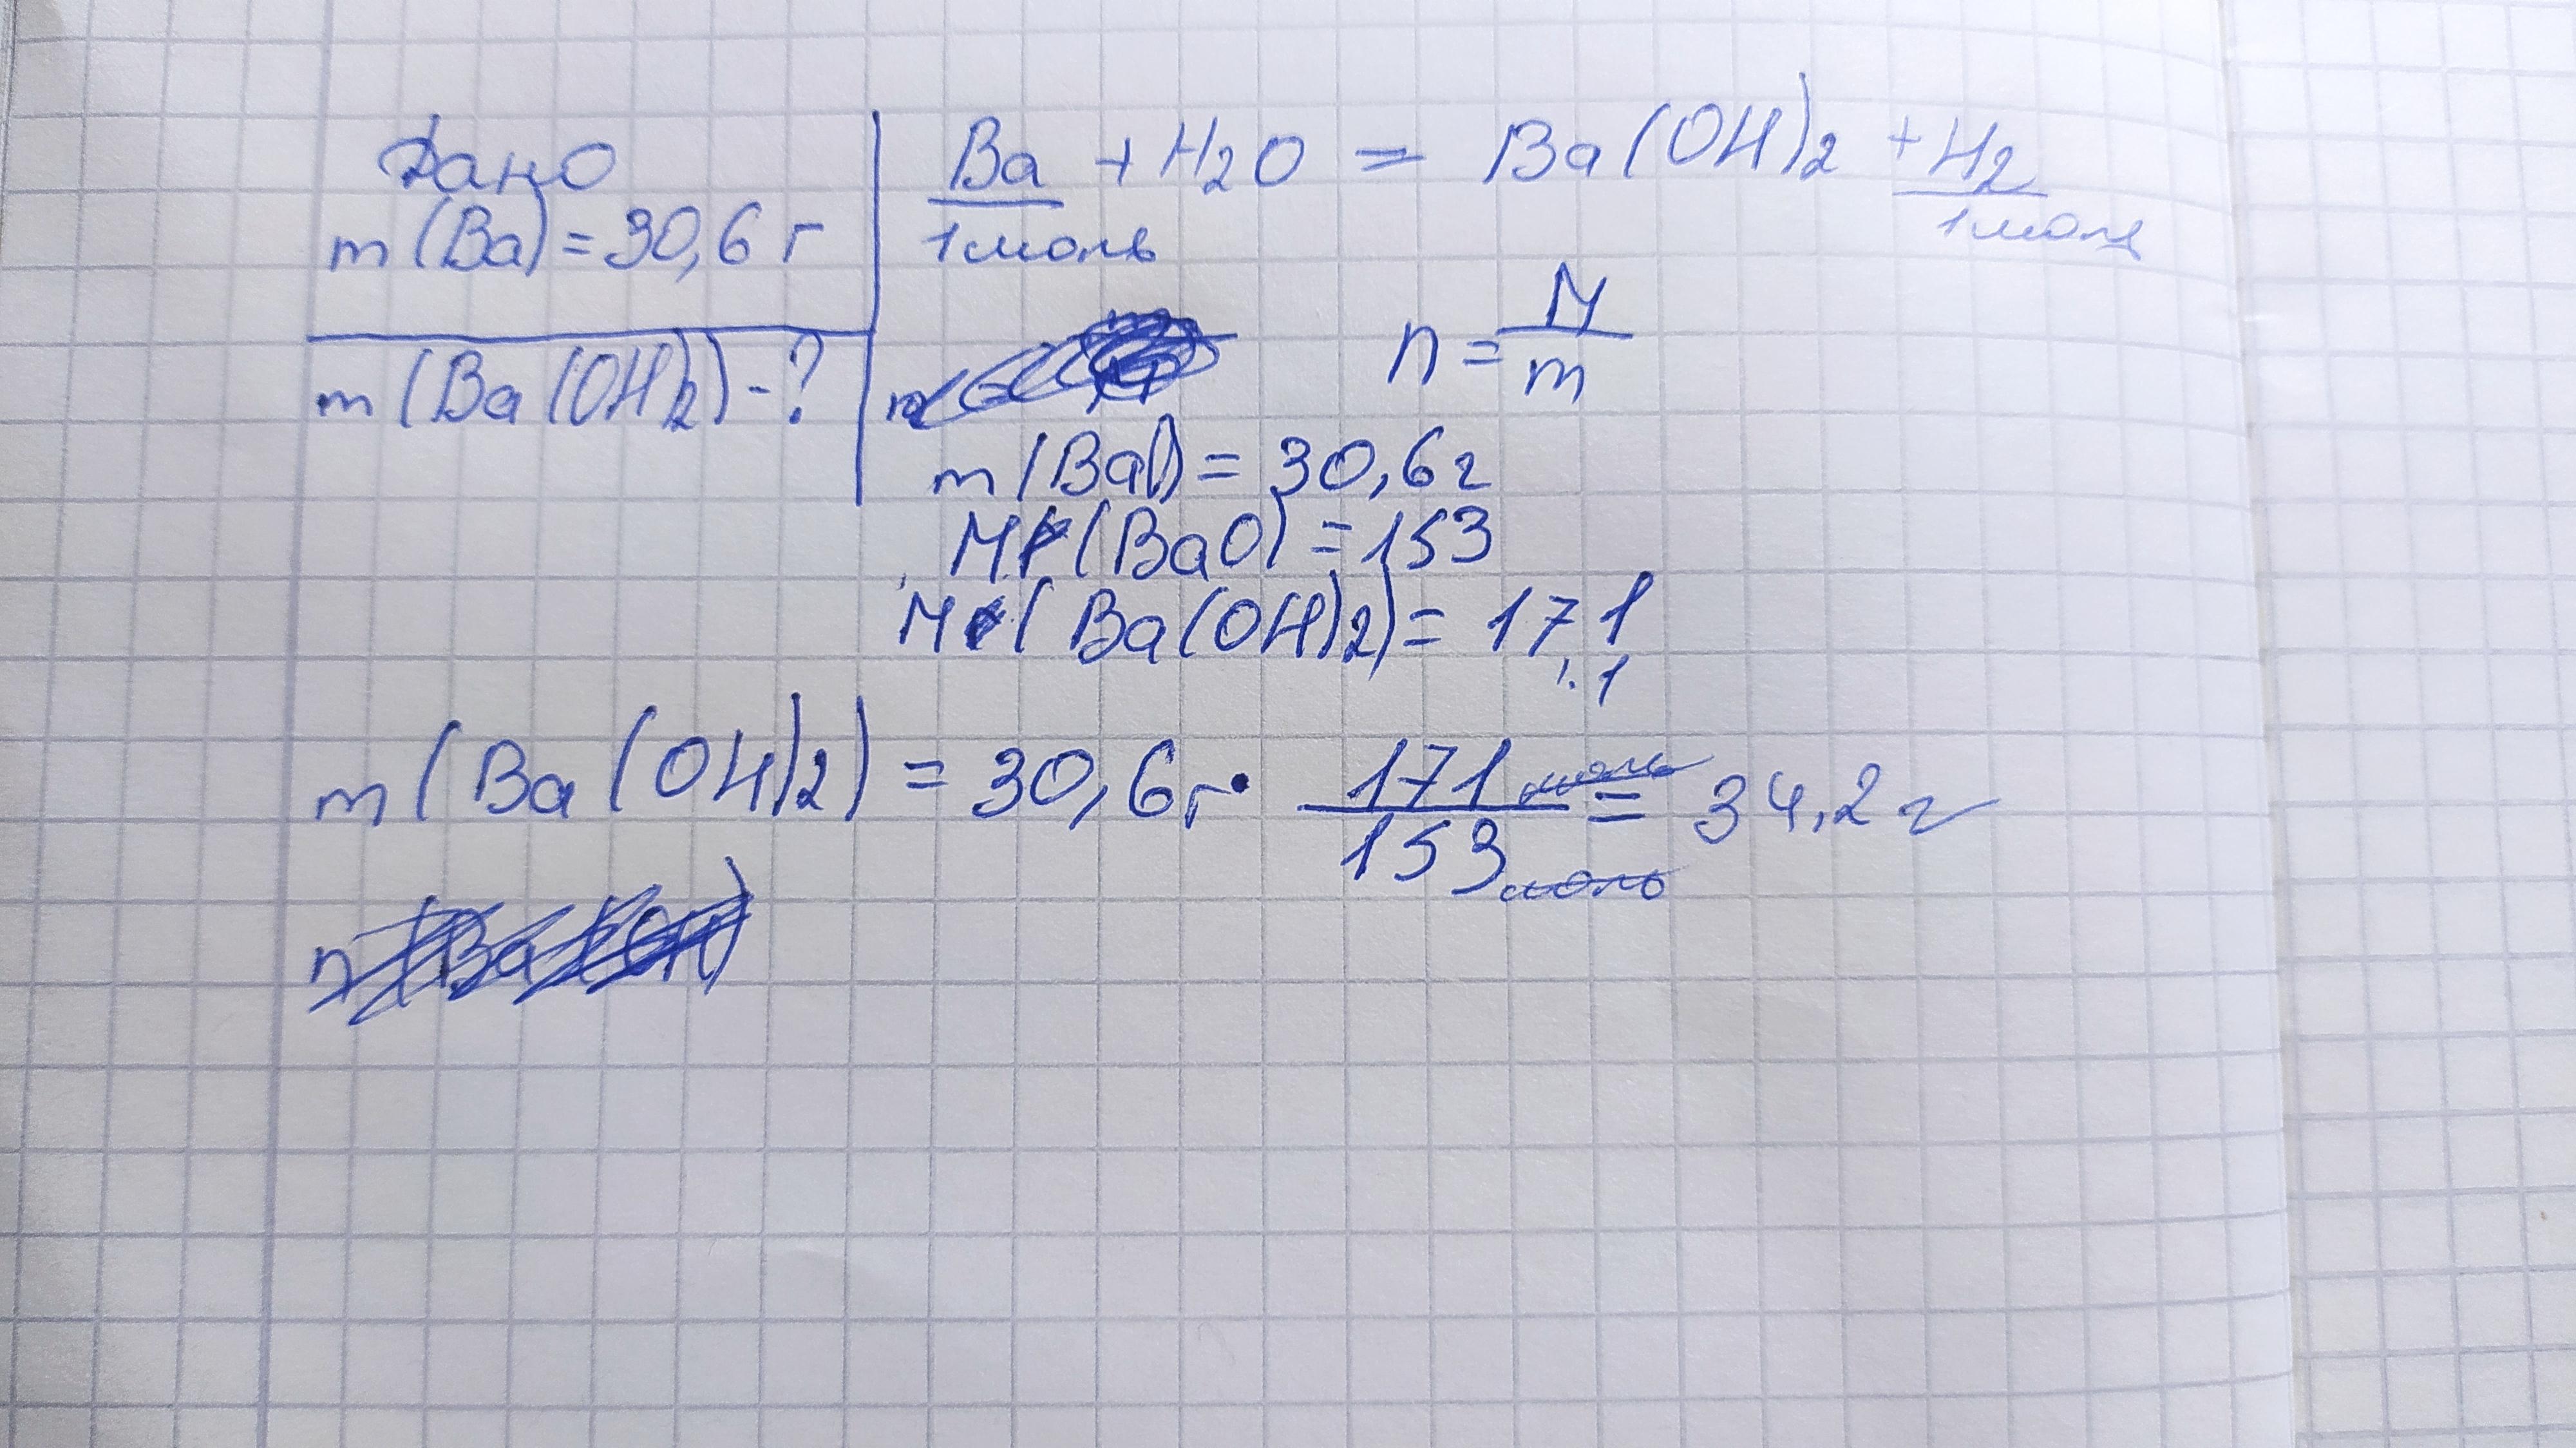 Дано
m(Ba)=30,6 г
m(Ba(OH)2)-?
Ba + H2O = Ba(OH)2 + H2
1 моль 1 моль
n = M/m
m(BaO) = 30,6 г
M(BaO) = 153
M(Ba(OH)2) = 171
:1
m(Ba(OH)2) = 30,6 г · 171 моль/153 моль = 34,2 г
n(Ba(OH)